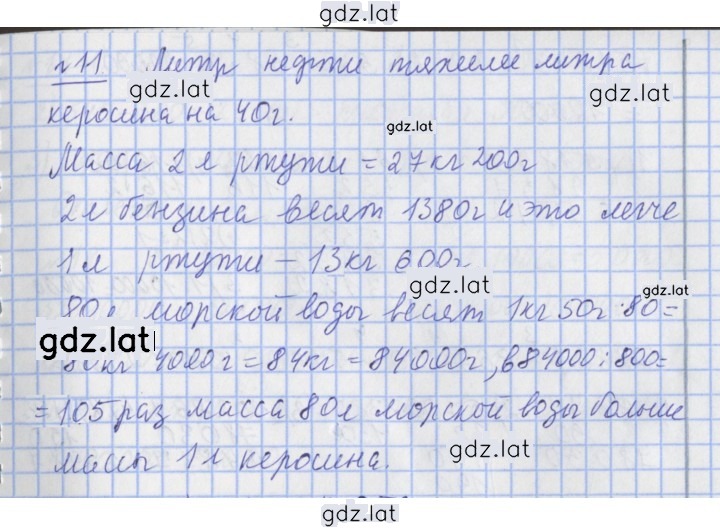 gdz.lat
№11 Литр нефти тяжелее литра
gdz.lat gdz.lat
керосина на 40г.
gdz.lat
Масса 2 л ртути = 27кг 200г
2л бензина весят 1380г и это легче
1л ртути – 13кг 600г
gdz.lat gdz.lat
80л морской воды весят 1кг 50г·80=
gdz.lat
80кг 4000г = 84кг = 84000г, в 84000:800=
= 105 раз масса 80л морской воды больше
массы 1л керосина.
gdz.lat
gdz.lat